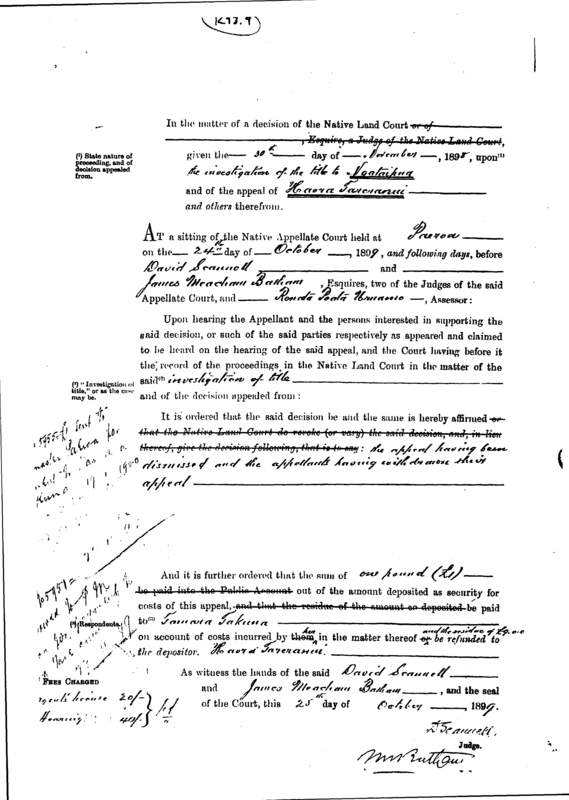 K93.9
In the matter of a decision of the Native Land Court or of
, Esquire, a Judge of the Native Land Court,
(1) State nature of proceeding, and of decision appealed from.
given the 30th day of November, 1898, upon(1)
the investigation of the title to
and of the appeal of Haora Tareranui
and others therefrom.
AT a sitting of the Native Appellate Court held at Paeroa
on the 24th day of October, 1899, and following days, before
David Scannell and
James Meacham Batham, Esquires, two of the Judges of the said
Appellate Court, and, Assessor:
Upon hearing the Appellant and the persons interested in supporting the
said decision, or such of the said parties respectively as appeared and claimed
to be heard on the hearing of the said appeal, and the Court having before it
the record of the proceedings in the Native Land Court in the matter of the
(2) "Investigation of title," or as the case may be.
said(2) investigation of title
and of the decision appealed from:
It is ordered that the said decision be and the same is hereby affirmed or
that the Native Land Court do revoke (or vary) the said decision, and, in lieu
thereof, give the decision following, that is to say: the appeal having been
dismissed and the appellants having withdrawn their
appeal
And it is further ordered that the sum of one pound (£1)
be paid into the Public Account out of the amount deposited as security for
costs of this appeal, and that the residue of the amount so deposited be paid
(3) Respondents.
to(3) Tamara Takuna
on account of costs incurred by them her in the matter thereof and the residue of or be refunded to
the depositor. Haora Tareranui
As witness the hands of the said David Scannell
FEES CHARGED
and James Meacham Batham, and the seal
20/-
of the Court, this 25th day of October, 1899.
Hearing 40/-
D Scannell
Judge.